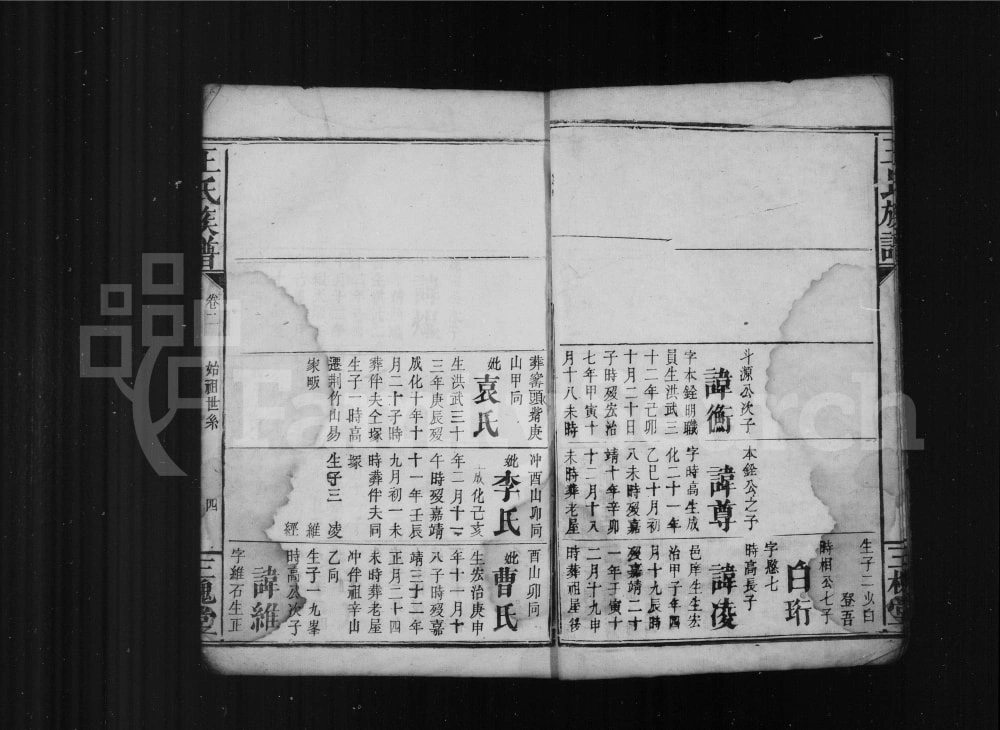 王氏族譜
三槐堂
斗源公次子
諱衡
字本銓明職
員生洪武三
十二年己卯
十月二十日
子時歿宏治
七年甲寅十
月十八未時
葬窰頭嘴庚
山甲同
妣袁氏
生洪武三十
三年庚辰歿
成化十年十
月二十子時
葬伴夫仝塚
生子一時高
遷荆竹山易
家畈
本銓公之子
諱尊
字時高生成
化二十一年
乙巳十月初
八未時歿嘉
靖十年辛卯
十二月十八
未時葬老屋
冲酉山卯同
妣李氏
成化己亥
年二月十二
午時歿嘉靖
十一年壬辰
九月初一未
時葬伴夫同
塚
生子三 凌
維
經
生子二 火白
登吾
時相公七子
白珩
字慜七
時高長子
諱凌
邑庠生生宏
治甲子年四
月十九辰時
歿嘉靖二十
一年壬寅十
二月十九申
時葬祖屋後
酉山卯同
妣曹氏
生宏治庚申
年十一月十
八子時歿嘉
靖三十二年
正月二十四
未時葬老屋
冲伴祖辛山
乙同
生子一九峯
時高公次子
諱維
字維石生正
王氏族譜
卷二
始祖世系
四
三槐堂